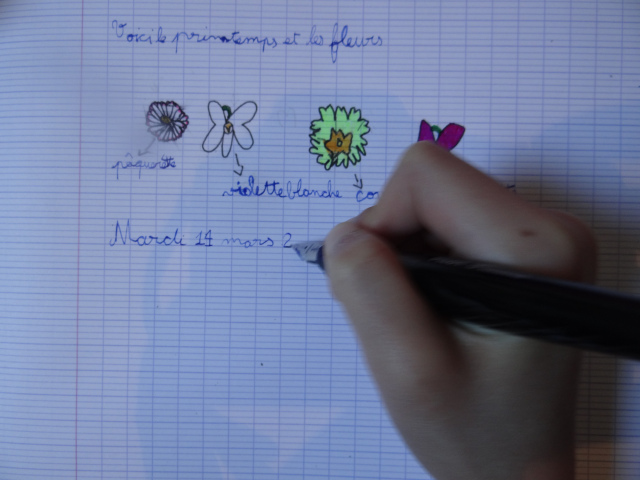 Voici le printemps et les fleurs
pâquerette
violette blanche co
Mardi 14 mars 2